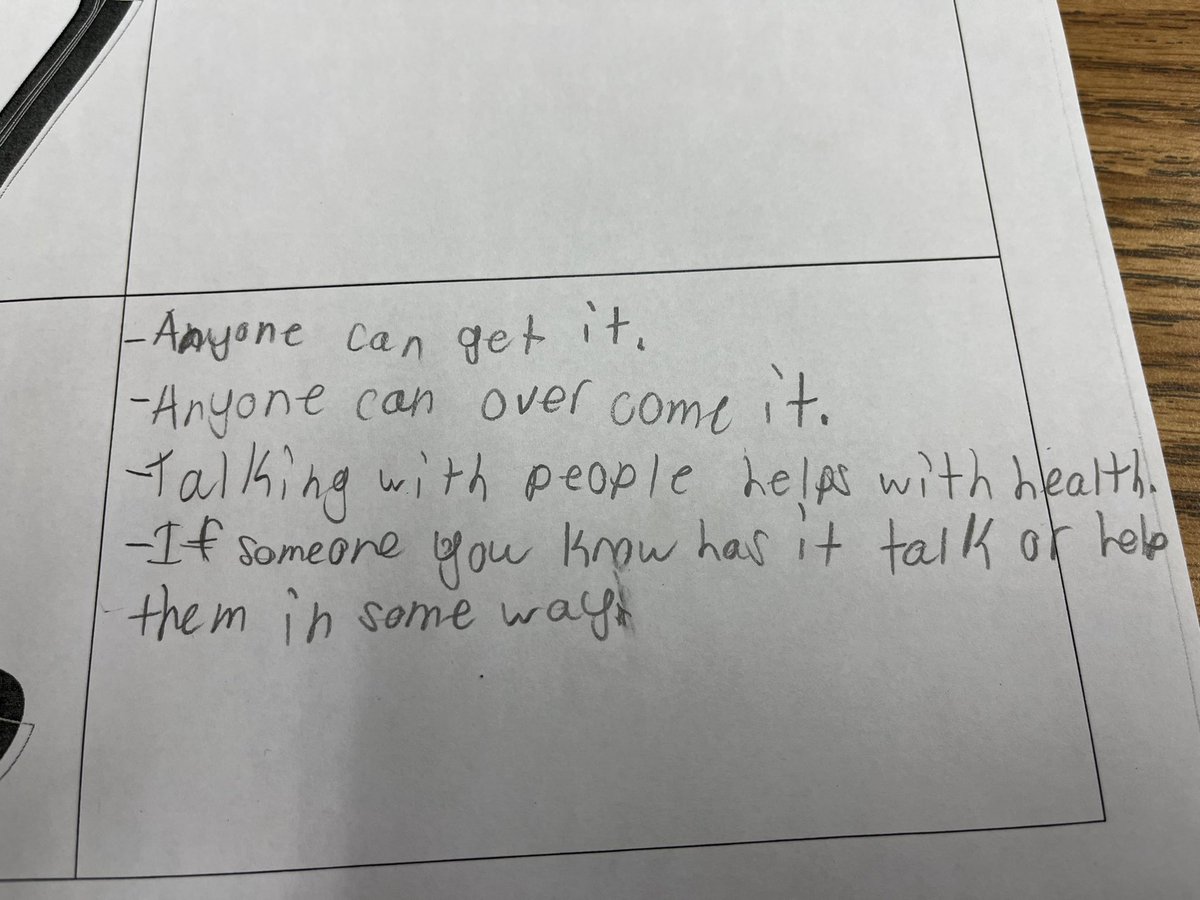 -Anyone can get it.
-Anyone can over come it.
-Talking with people helps with health.
-If someone you know has it talk or help
them in some way